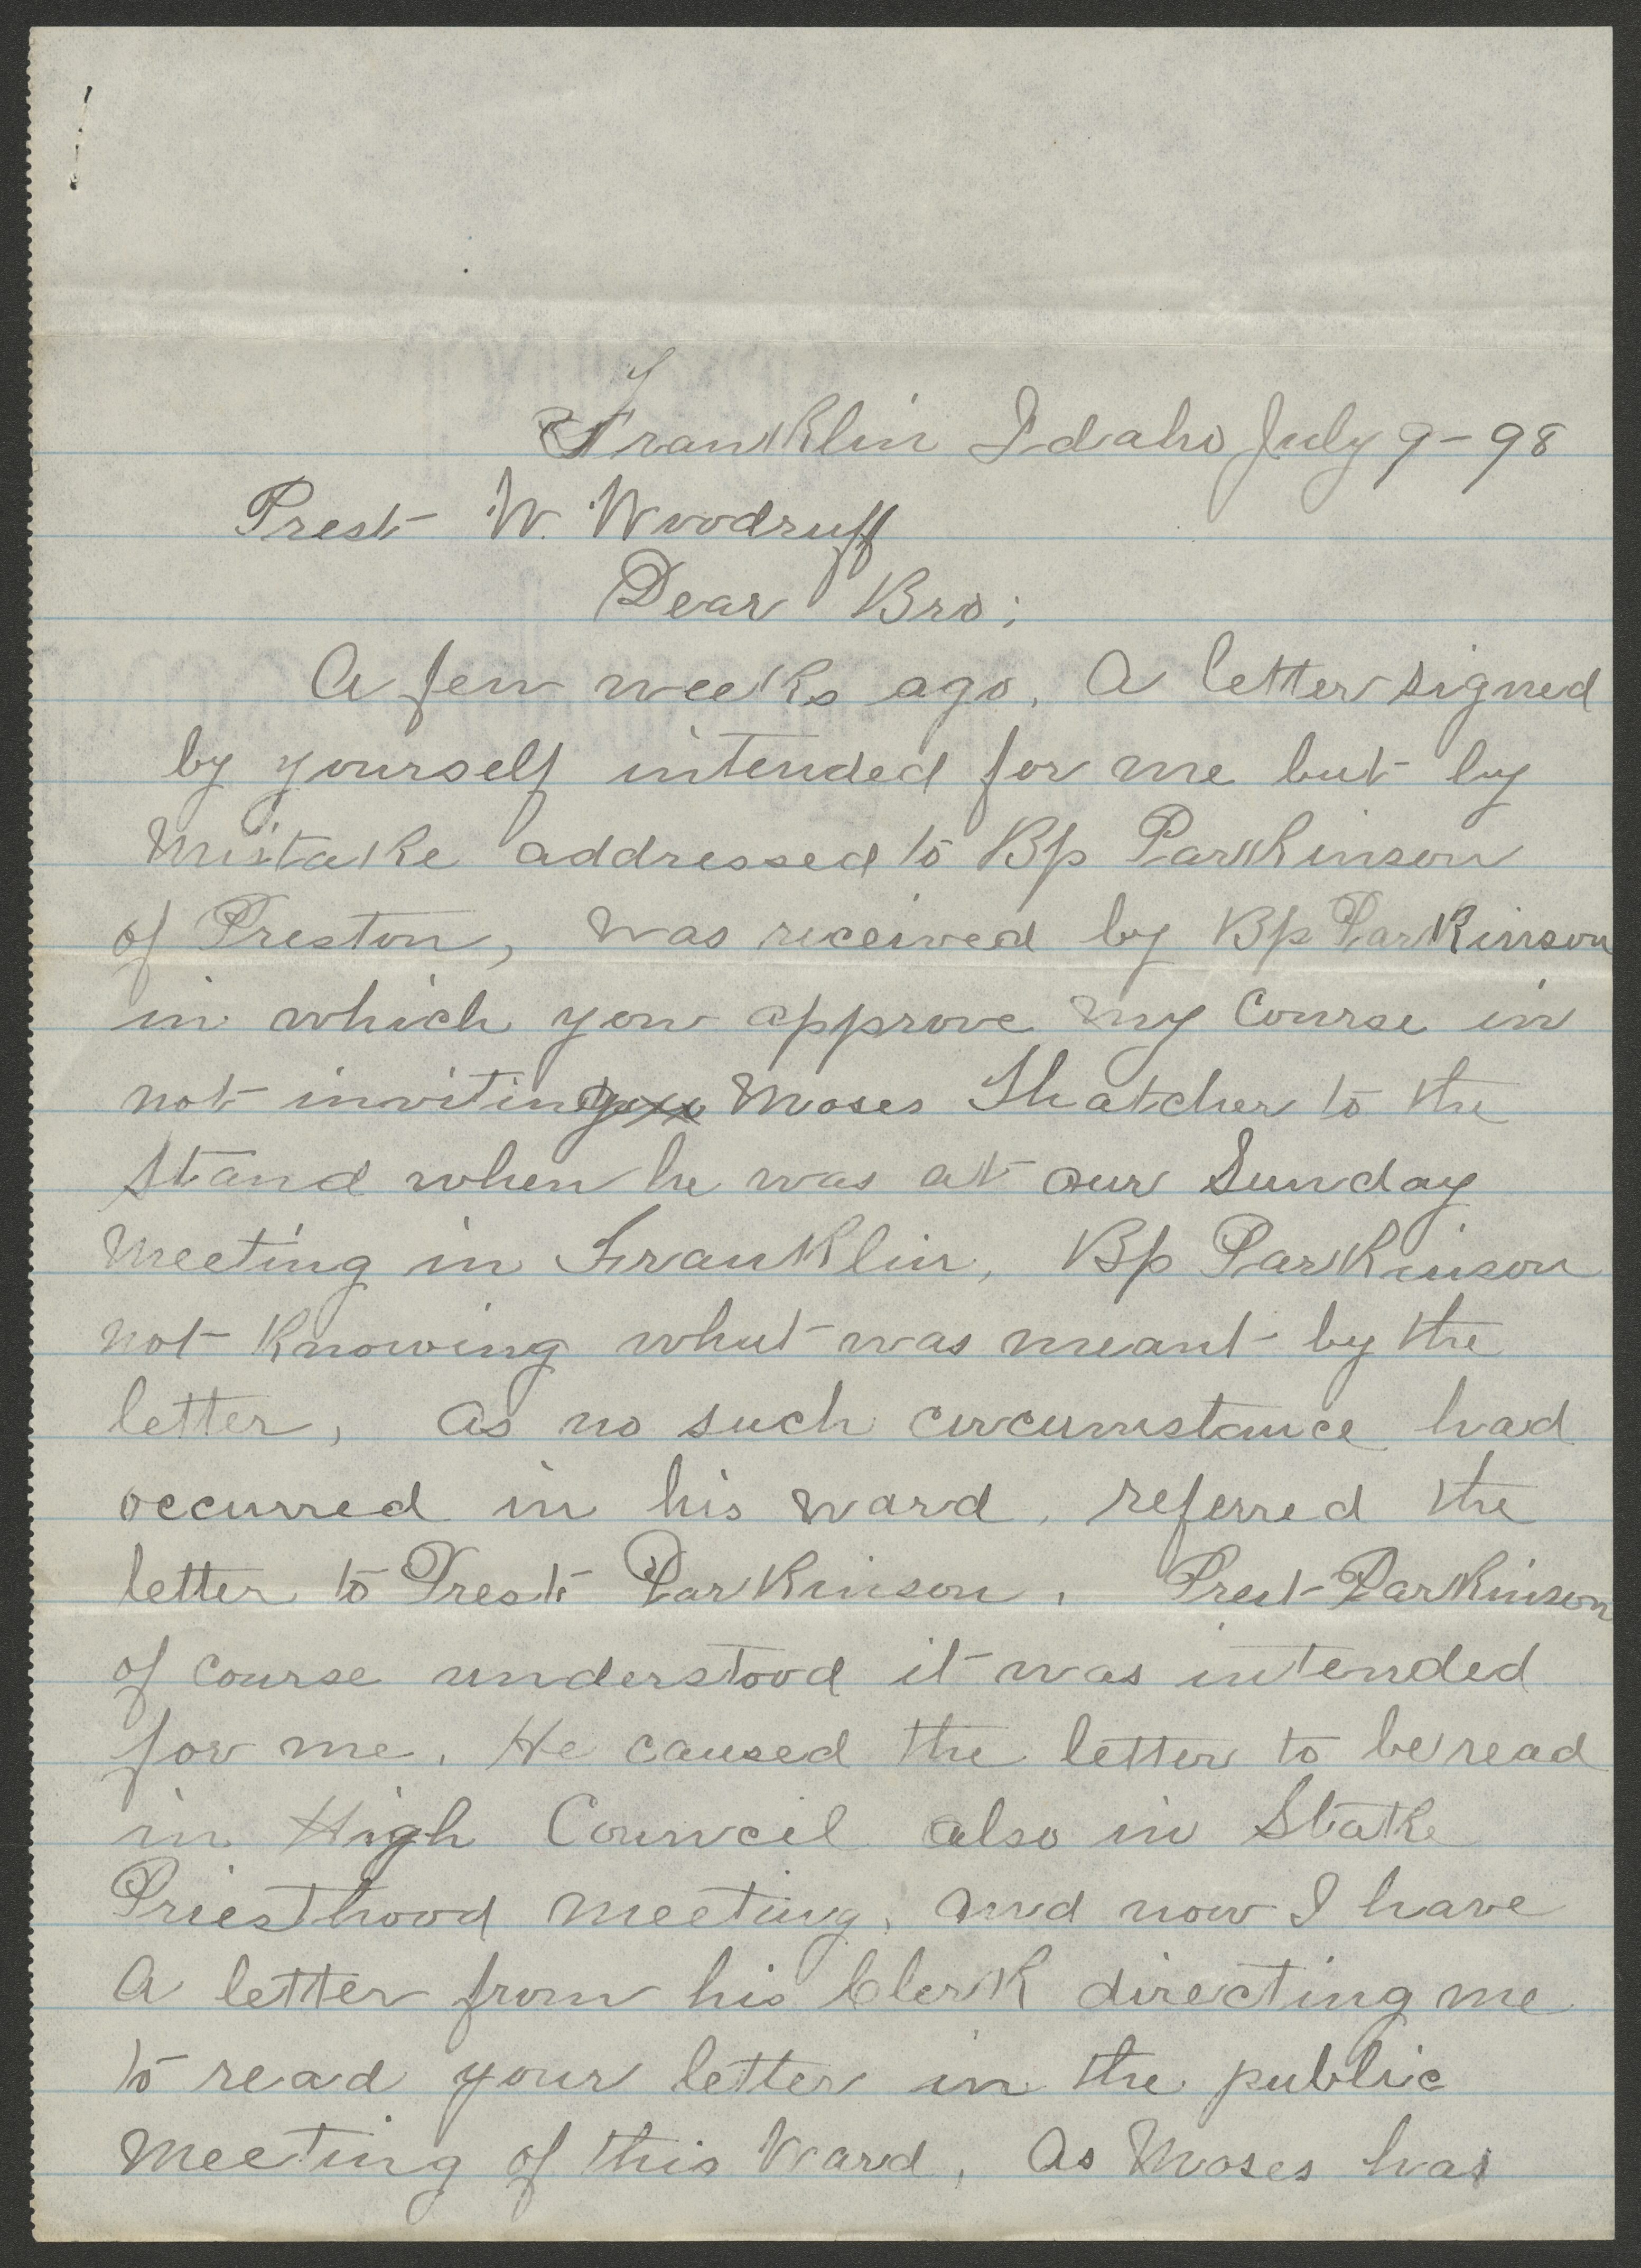 Franklin Idaho July 9-98
Prest W. Woodruff
Dear Bro;
A few weeks ago, A letter signed
by yourself intended for me but by
Mistake addressed to Bp Parkinson
of Preston, was received by Bp Parkinson
in which you approve my Course in
not inviting Moses Thatcher to the
stand when he was at our Sunday
Meeting in Franklin, Bp Parkinson
not knowing what was meant by the
letter, as no such circumstance had
occurred in his ward, referred the
letter to Prest Parkinson, Prest Parkinson
of course understood it was intended
for me. He caused the letter to be read
in High Council also in Stake
Priesthood meeting, and now I have
A letter from his Clerk directing me
to read your letter in the public
Meeting of this Ward, As Moses has